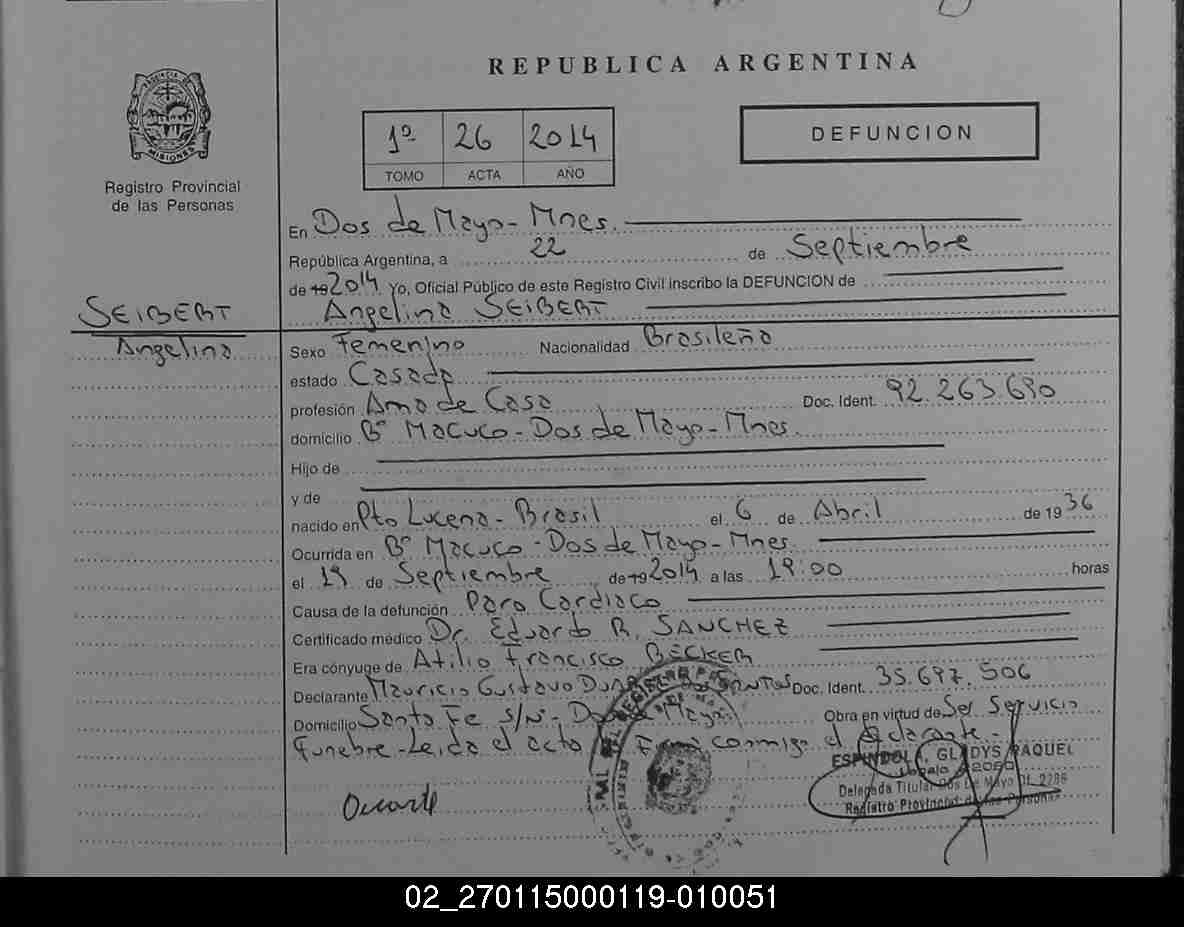 REPUBLICA ARGENTINA
PROVINCIA DE MISIONES
Registro Provincial
de las Personas
1º 26 2014
TOMO ACTA AÑO
DEFUNCION
En Dos de Mayo - Mnes.
República Argentina, a 22 de Septiembre
de 19 2014 yo, Oficial Público de este Registro Civil inscribo la DEFUNCION de
Angelina SEIBERT
SEIBERT
Angelina
Sexo Femenino Nacionalidad Brasileña
estado Casada
profesión Ama de Casa Doc. Ident. 92.263.690
domicilio Bº Macuco - Dos de Mayo - Mnes.
Hijo de
y de
nacido en Pto Lucena - Brasil el 6 de Abril de 1936
Ocurrida en Bº Macuco - Dos de Mayo - Mnes.
el 19 de Septiembre de 19 2014 a las 19:00 horas
Causa de la defunción Paro Cardiaco
Certificado médico Dr. Eduardo R. SANCHEZ
Era cónyuge de Atilio Francisco BECKER
Declarante Mauricio Gustavo SANTOS Doc. Ident. 35.697.506
Domicilio Santa Fe S/Nº - Dos de Mayo Obra en virtud de Ser Servicio
Funebre - Leida el acta Firma conmigo el declarante -
ESPINDOLA, GLADYS RAQUEL
Legajo 2080
Delegada Titular Dos De Mayo Dl. 2286
Registro Provincial de las Personas
02_270115000119-010051